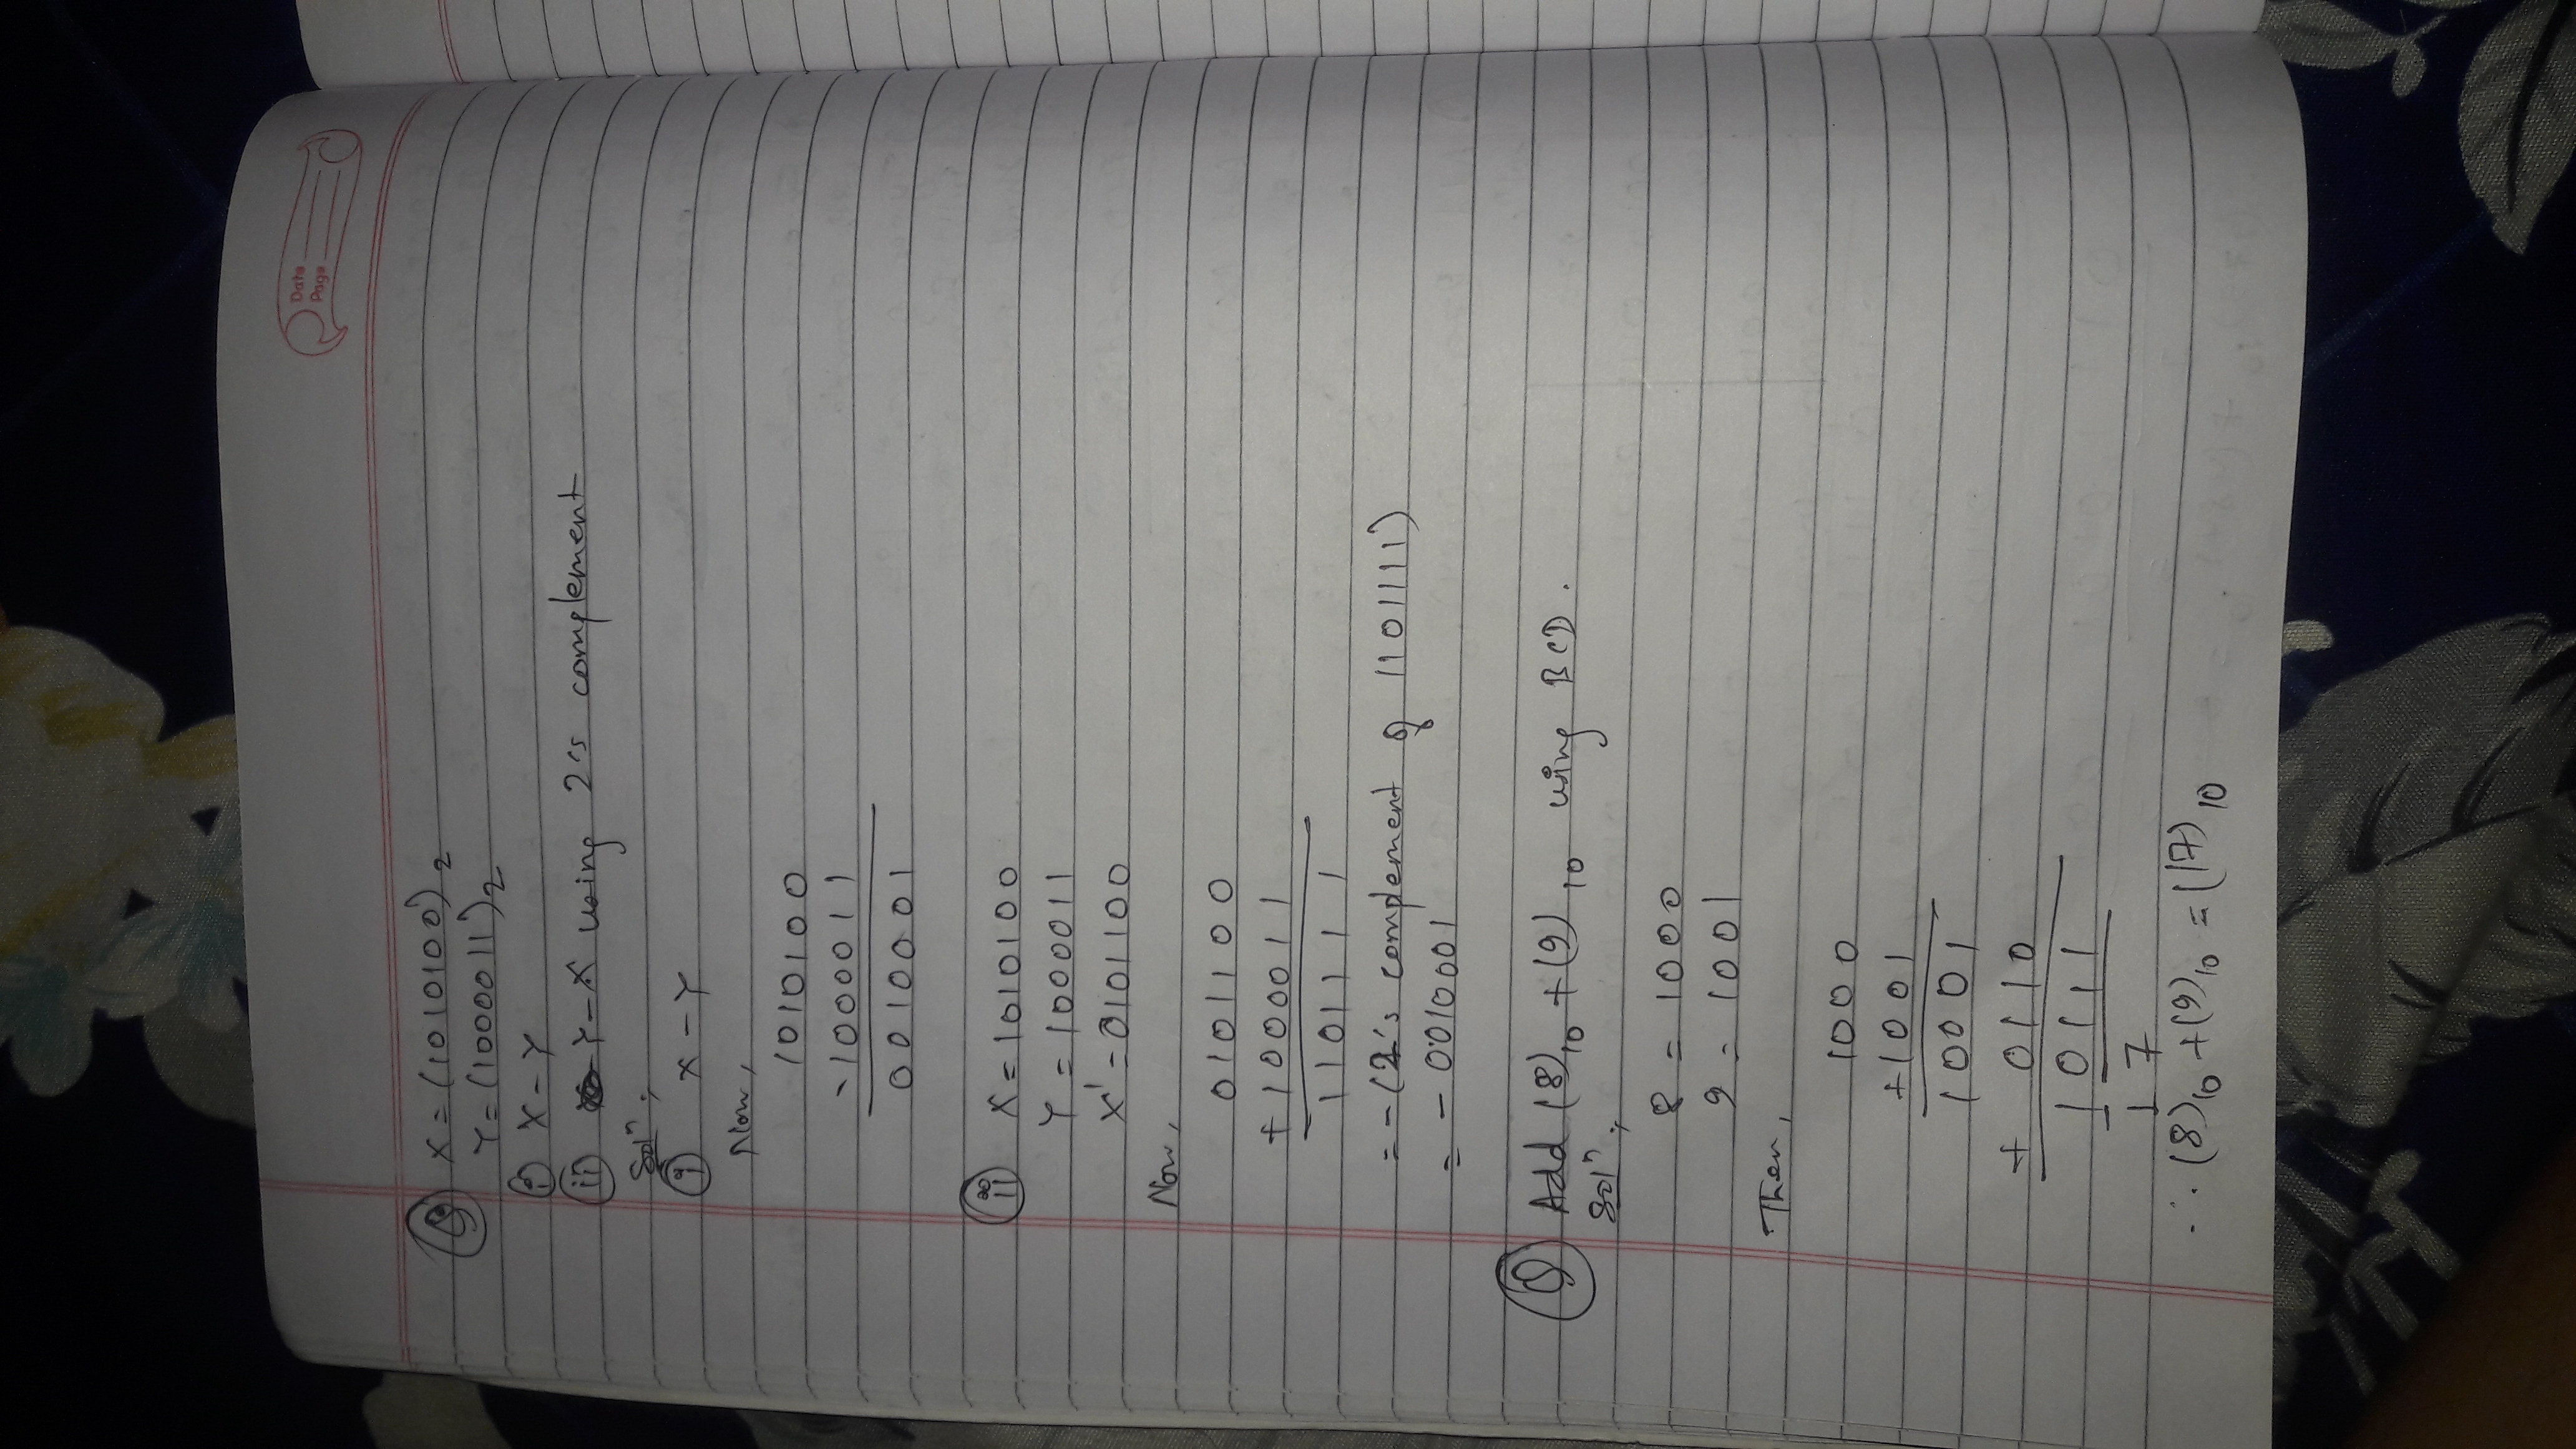 Date
Page
Q X = (1010100)2
Y = (1000011)2
i X - Y
ii Y - X using 2's complement
Solⁿ;
i X - Y
Now,
1010100
- 1000011
0010001
ii X = 1010100
Y = 1000011
X' = 0101100
Now,
0101100
+ 1000011
1101111
= - (2's complement of 1101111)
= - 0010001
Q Add (8)10 + (9)10 using BCD.
Solⁿ;
8 = 1000
9 = 1001
Then,
1000
+ 1001
10001
+ 0110
10111
1 7
∴ (8)10 + (9)10 = (17)10